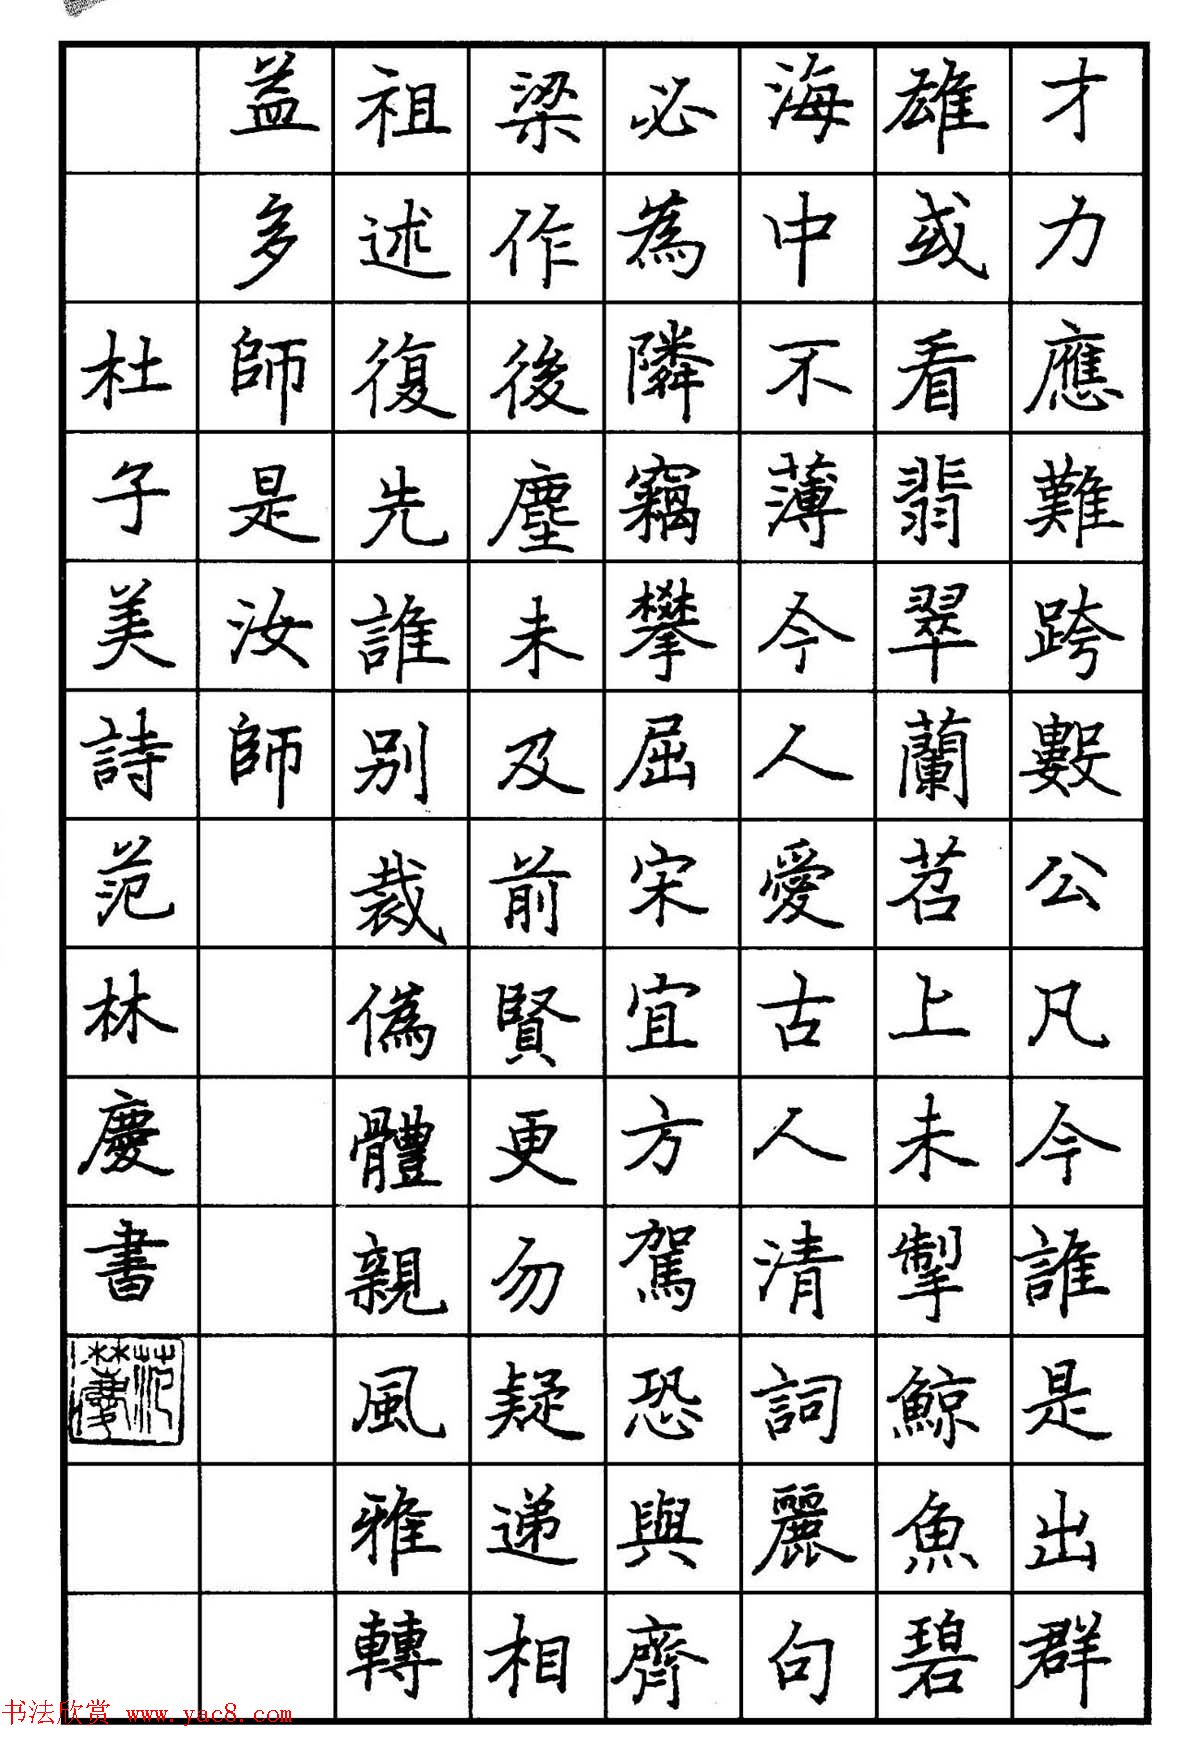 才力應難跨數公凡今誰是出群
雄或看翡翠蘭苕上未掣鯨魚碧
海中不薄今人愛古人清詞麗句
必為隣竊攀屈宋宜方駕恐與齊
梁作後塵未及前賢更勿疑遞相
祖述復先誰别裁偽體親風雅轉
益多師是汝師
杜子美詩范林慶書
范林慶
书法欣赏 www.yac8.com